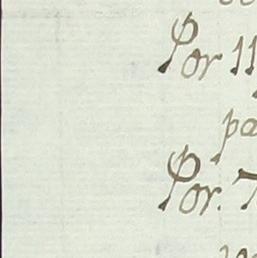 Por 11
pa
Por. 7